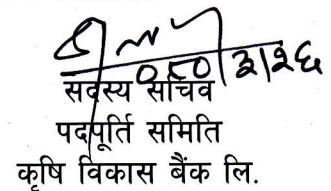 ०८०।३।२६
सदस्य सचिव
पदपूर्ति समिति
कृषि विकास बैंक लि.